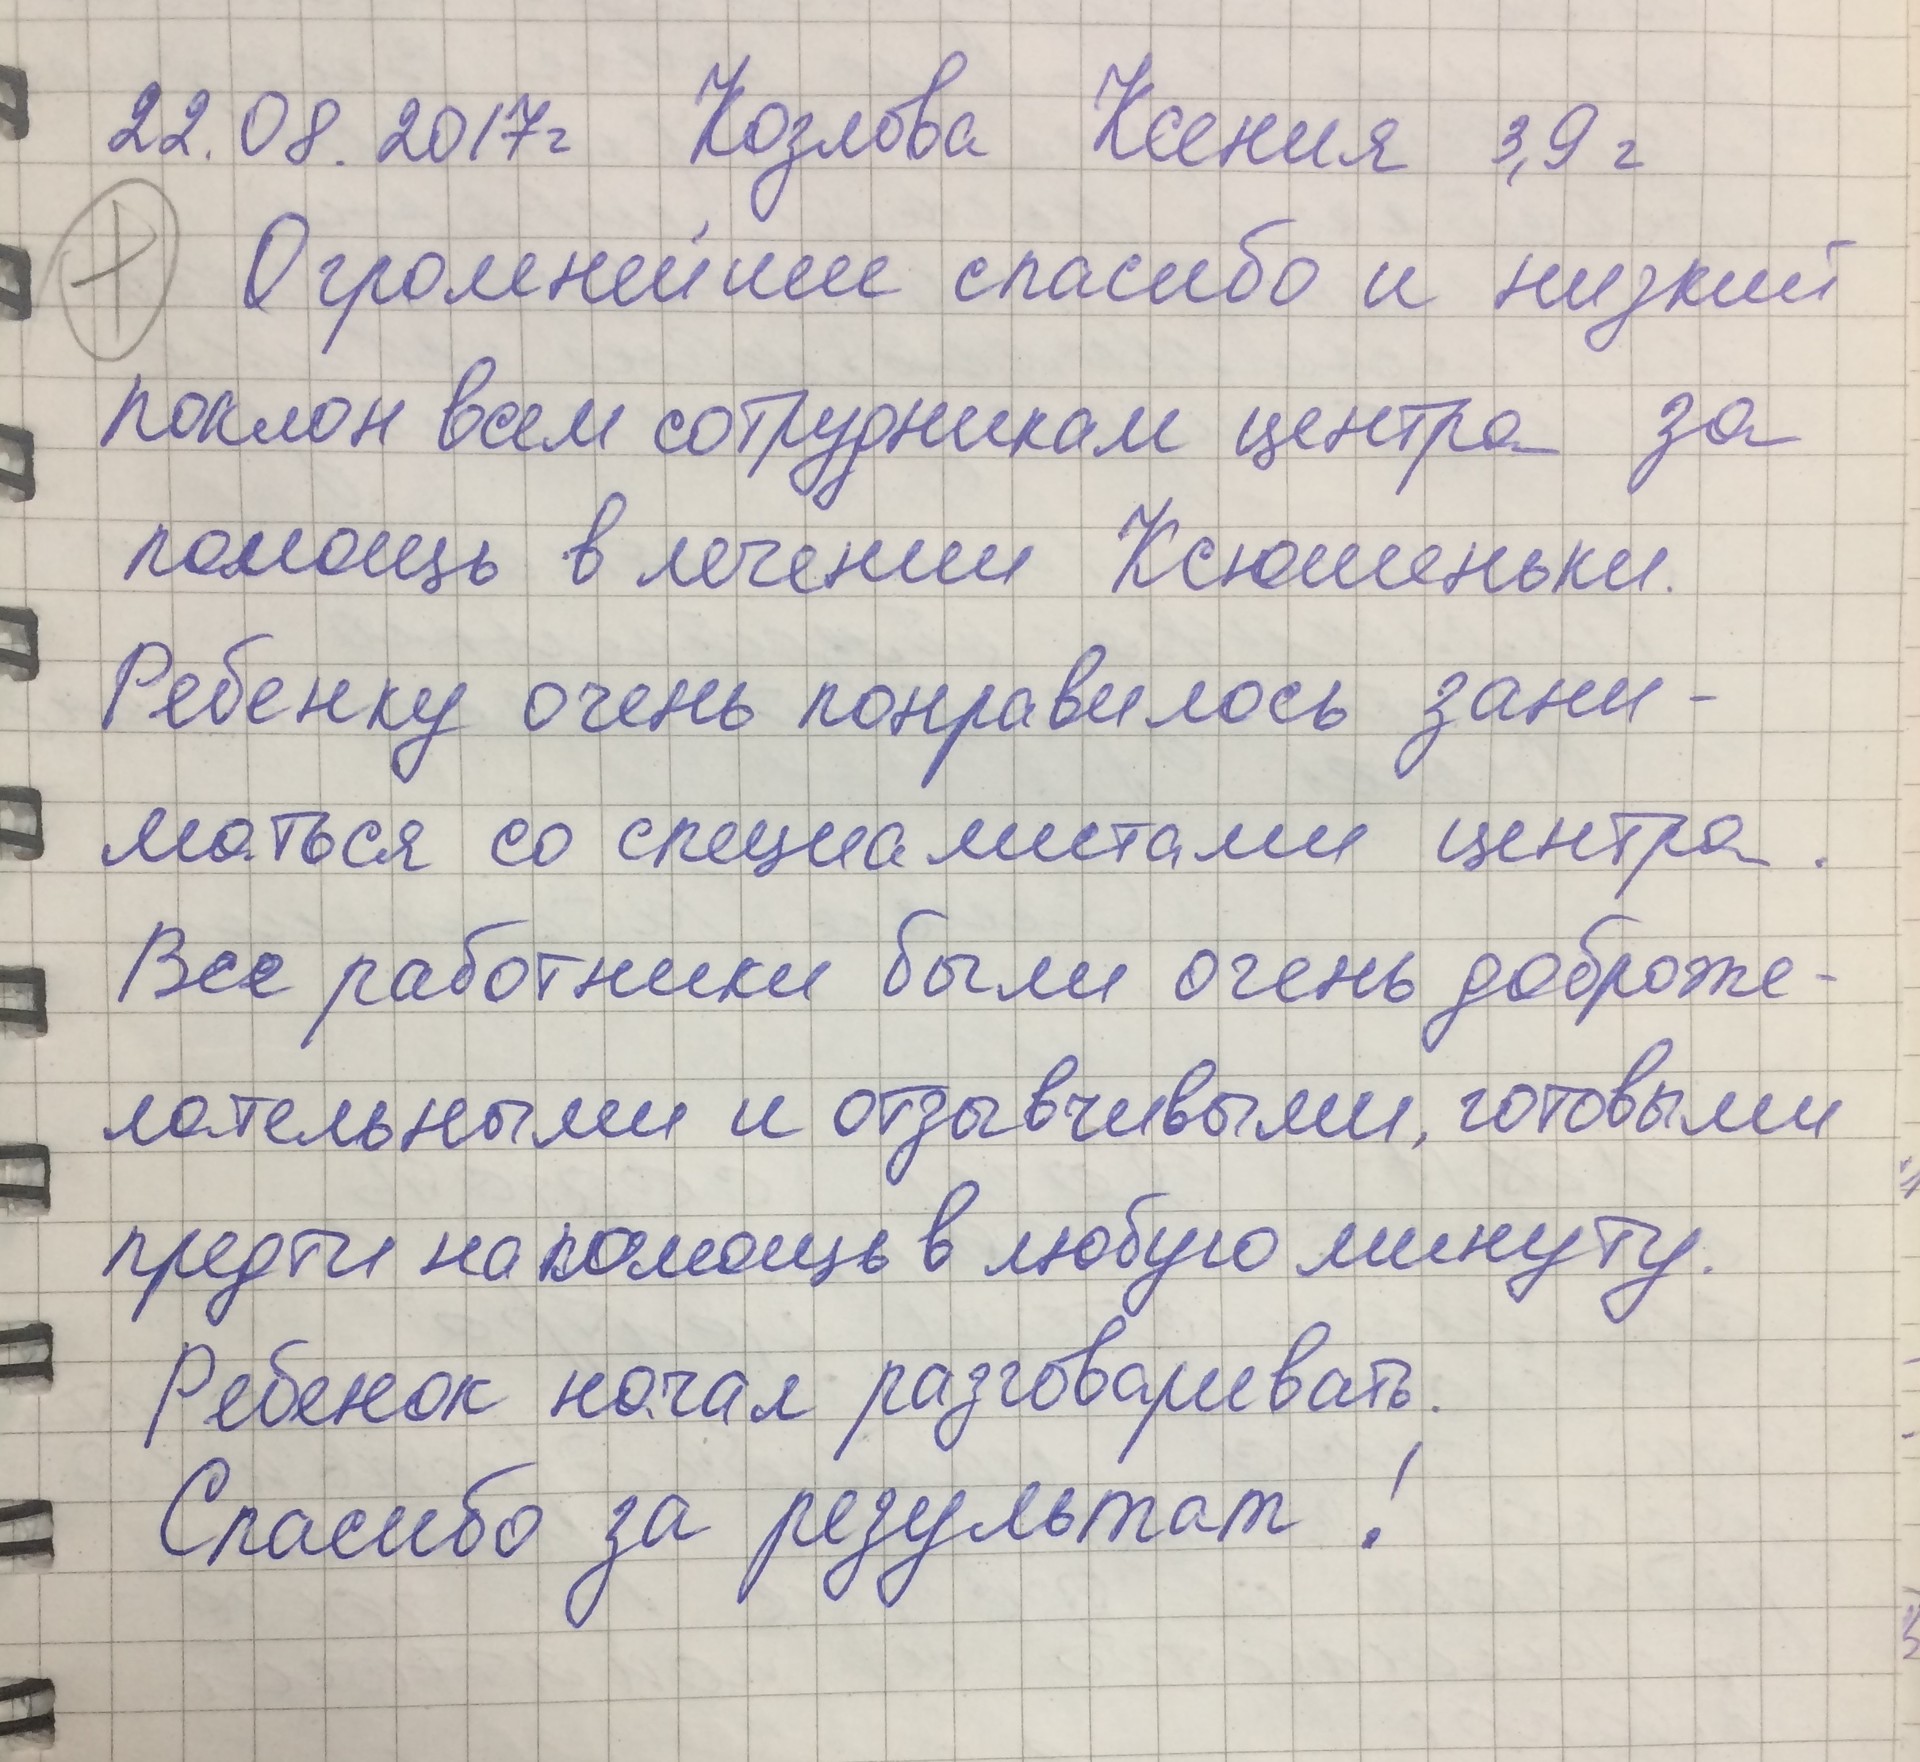 22.08.2017г Козлова Ксения 3,9 г
Огромнейшее спасибо и низкий
поклон всем сотрудникам центра за
помощь в лечении Ксюшеньки.
Ребенку очень понравилось зани-
маться со специалистами центра.
Все работники были очень доброже-
лательными и отзывчивыми, готовыми
предти на помощь в любую минуту.
Ребенок начал разговаривать.
Спасибо за результат!